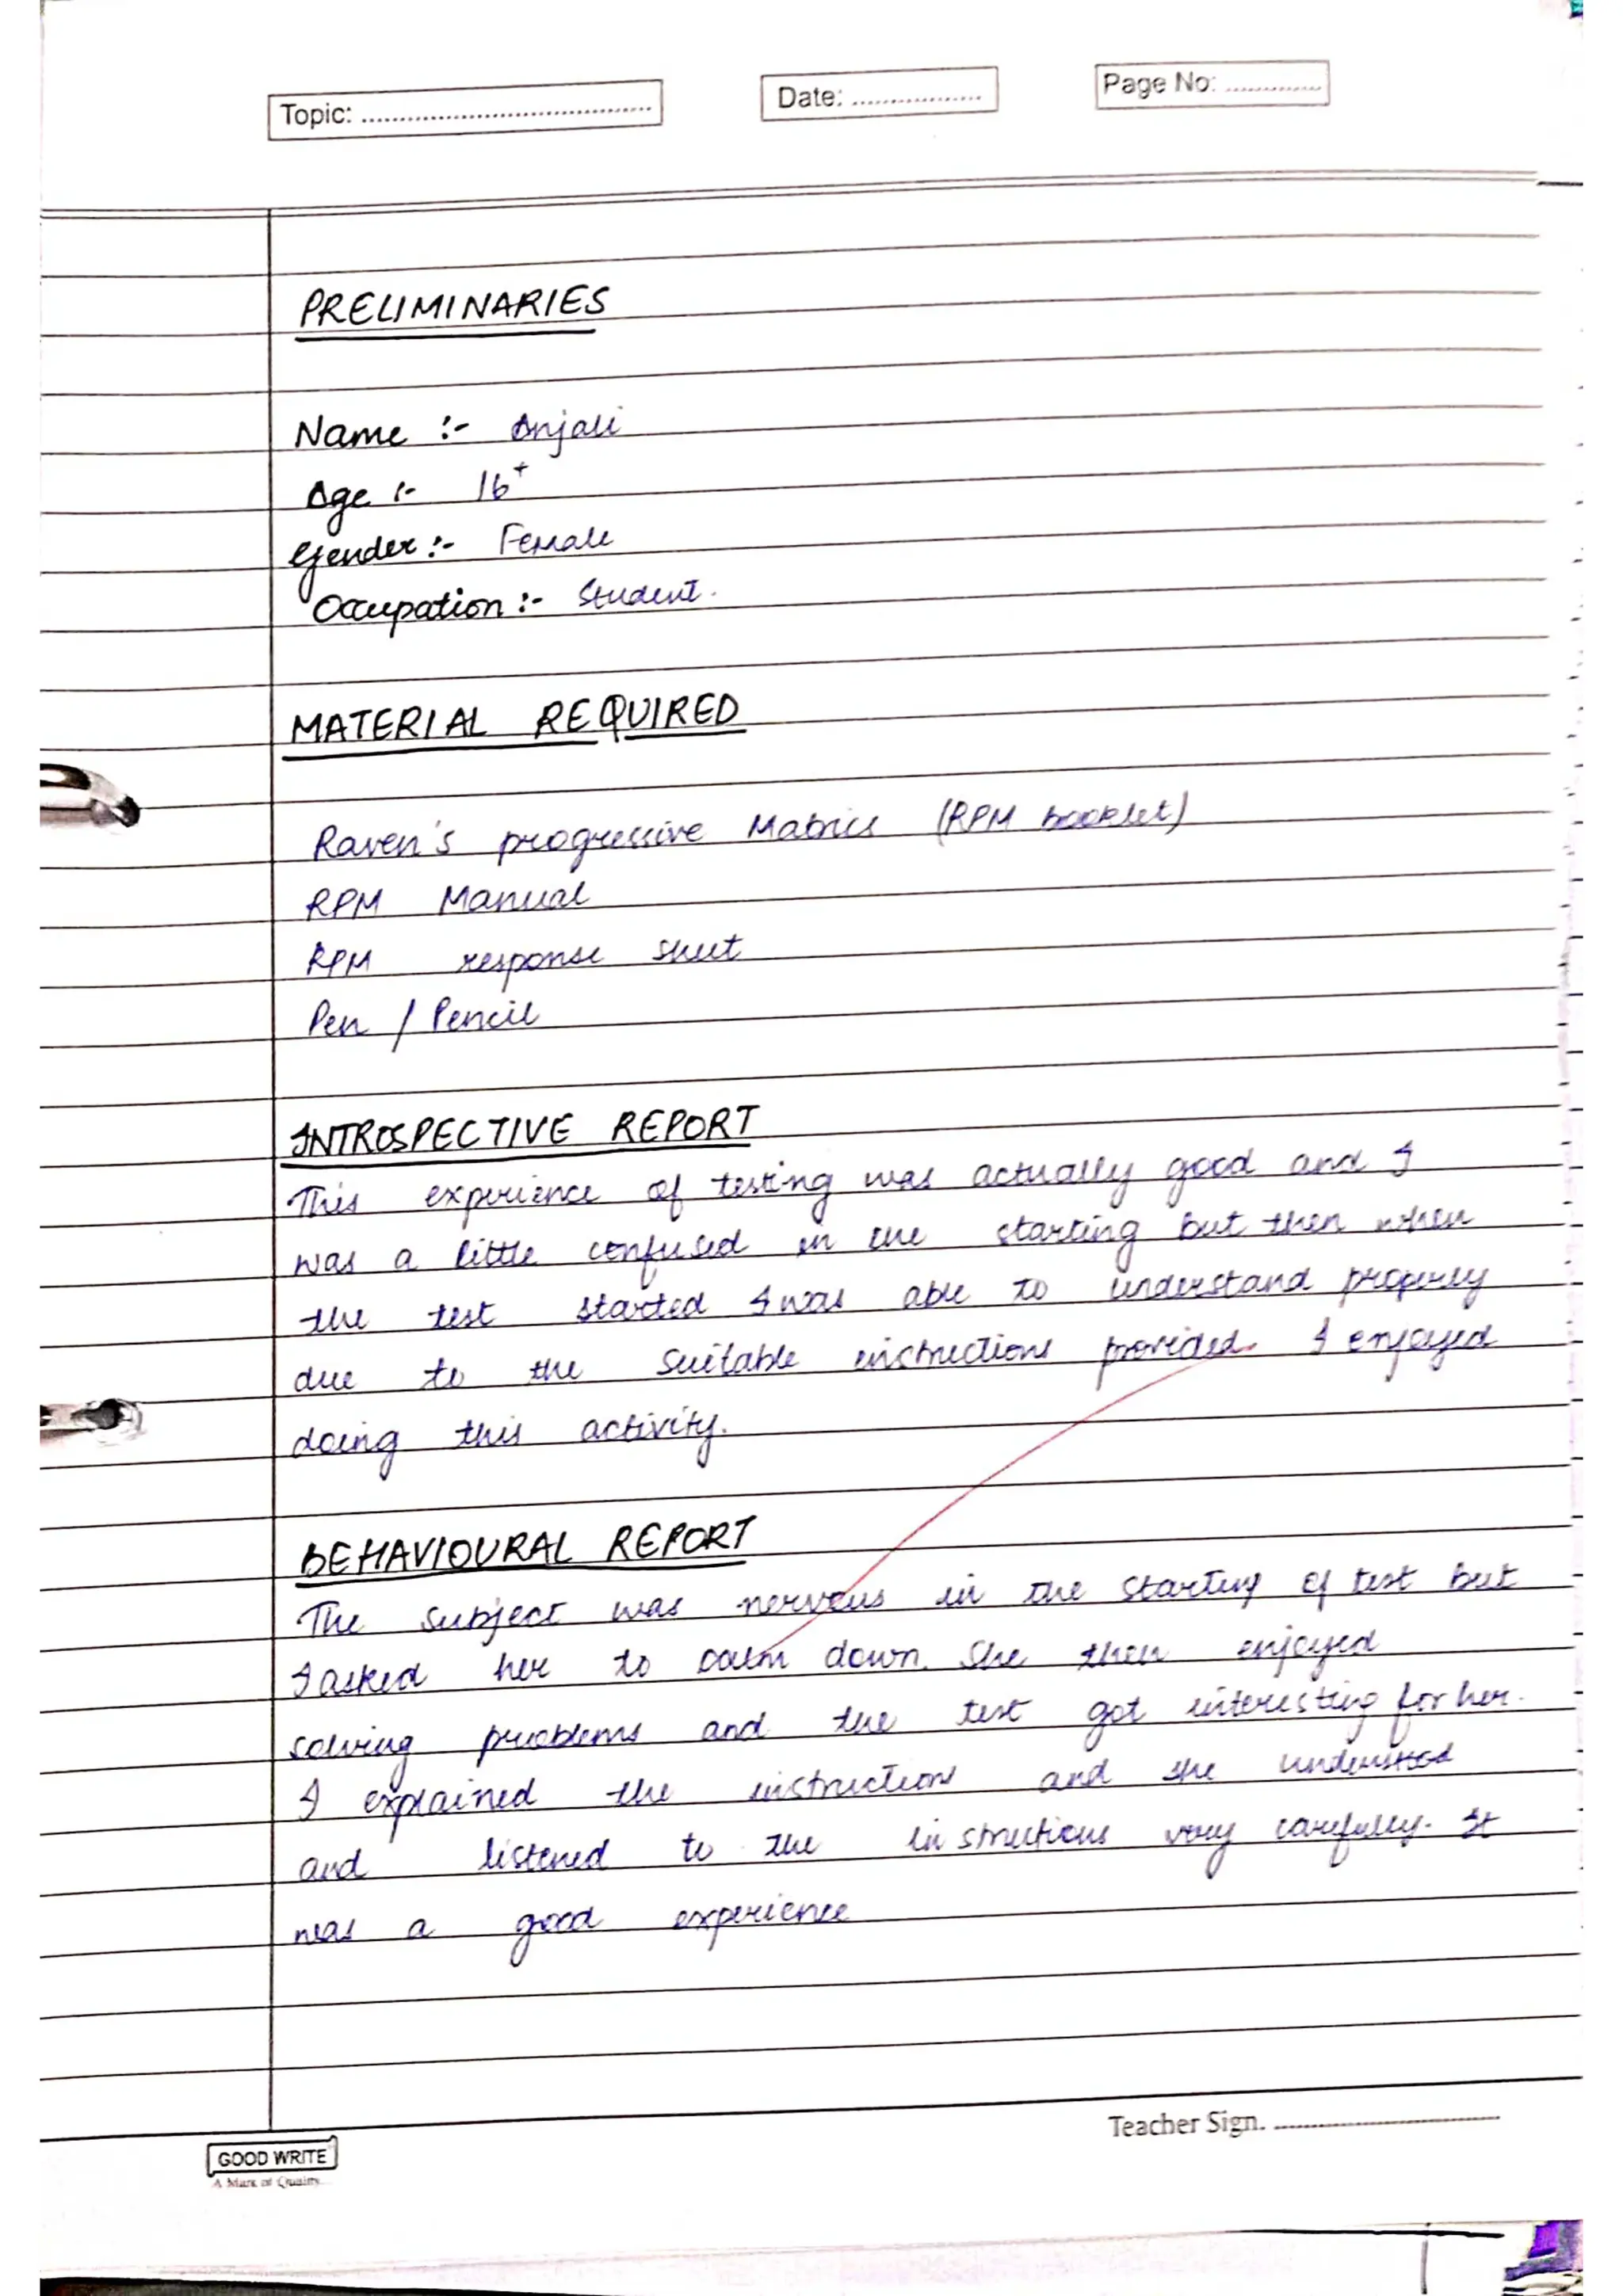 Topic: ....................................
Date: ..................
Page No: .............
PRELIMINARIES
Name :- Anjali
Age :- 16+
Gender :- Female
Occupation :- Student.
MATERIAL REQUIRED
Raven's progressive Matrics (RPM booklet)
RPM Manual
RPM response sheet
Pen / Pencil
INTROSPECTIVE REPORT
This experience of testing was actually good and I
was a little confused in the starting but then when
the test started I was able to understand properly
due to the suitable instructions provided. I enjoyed
doing this activity.
BEHAVIOURAL REPORT
The subject was nervous in the starting of test but
I asked her to calm down. She then enjoyed
solving problems and the test got interesting for her.
I explained the instructions and she understood
and listened to the instructions very carefully. It
was a good experience
Teacher Sign. ..............................
GOOD WRITE
A Mark of Quality